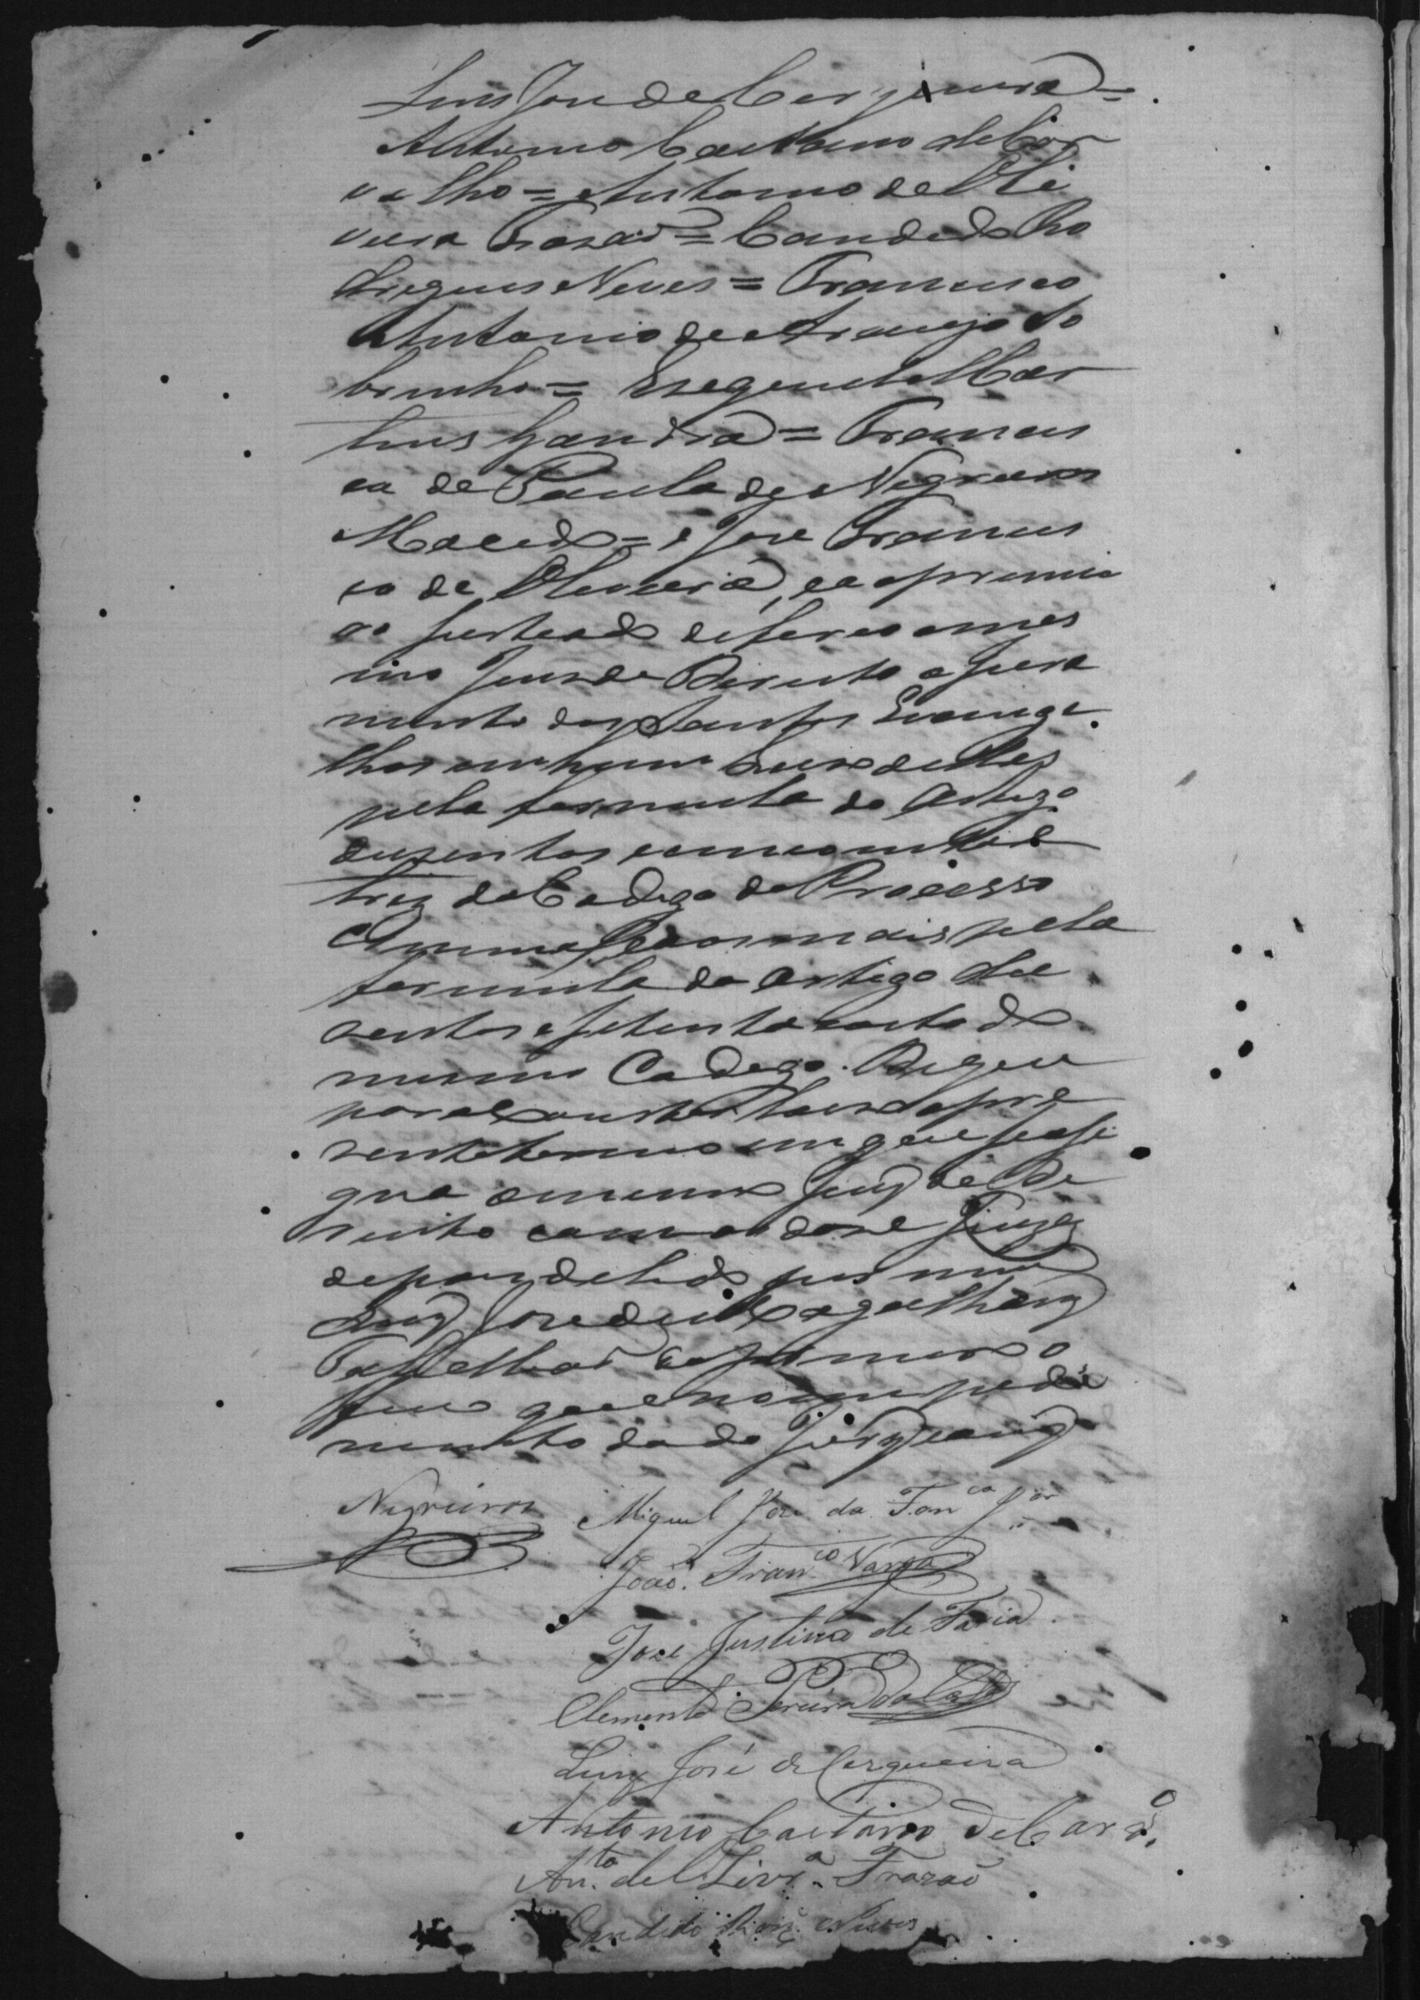 Luis José de Cerqueira =
Antonio Caetano de Car
valho = Antonio de Oli
veira Frazaõ = Candido Ro
drigues Neves = Francisco
Antonio de Araujo So
brinho = Mar
tins Gandra = Francis
co de Paula de Negreiros
Macedo = e José Francis
co de Oliveira, e a o primei
ro deferio o mes
mo Juiz de Direito o jura
mento dos Santos Evange
lhos em hum Livro delles
pela formula do Artigo
duzentos e cincoenta e
trez do Codigo do Processo
Criminal e aos mais pela
formula do Artigo du
zentos e setenta e oito do
mesmo Codigo. De que
para constar lavro o pre
sente termo em que se assi
gna o mesmo Juiz de Di
reito com os doze Juizes
depois de lido por mim
Luiz José de Magalhães
Tabelliaõ do
que no impedi
mento do do Jury escrevy
Negreiros Miguel José da Fon.ca J.or
Joaõ Fran.co Varga
José Justino de Faria
Clemente Pereira da
Luiz José de Cerqueira
Antonio Caetano de Carv.o
An.to de Olivr.a Frazaõ
Candido Roiz Neves